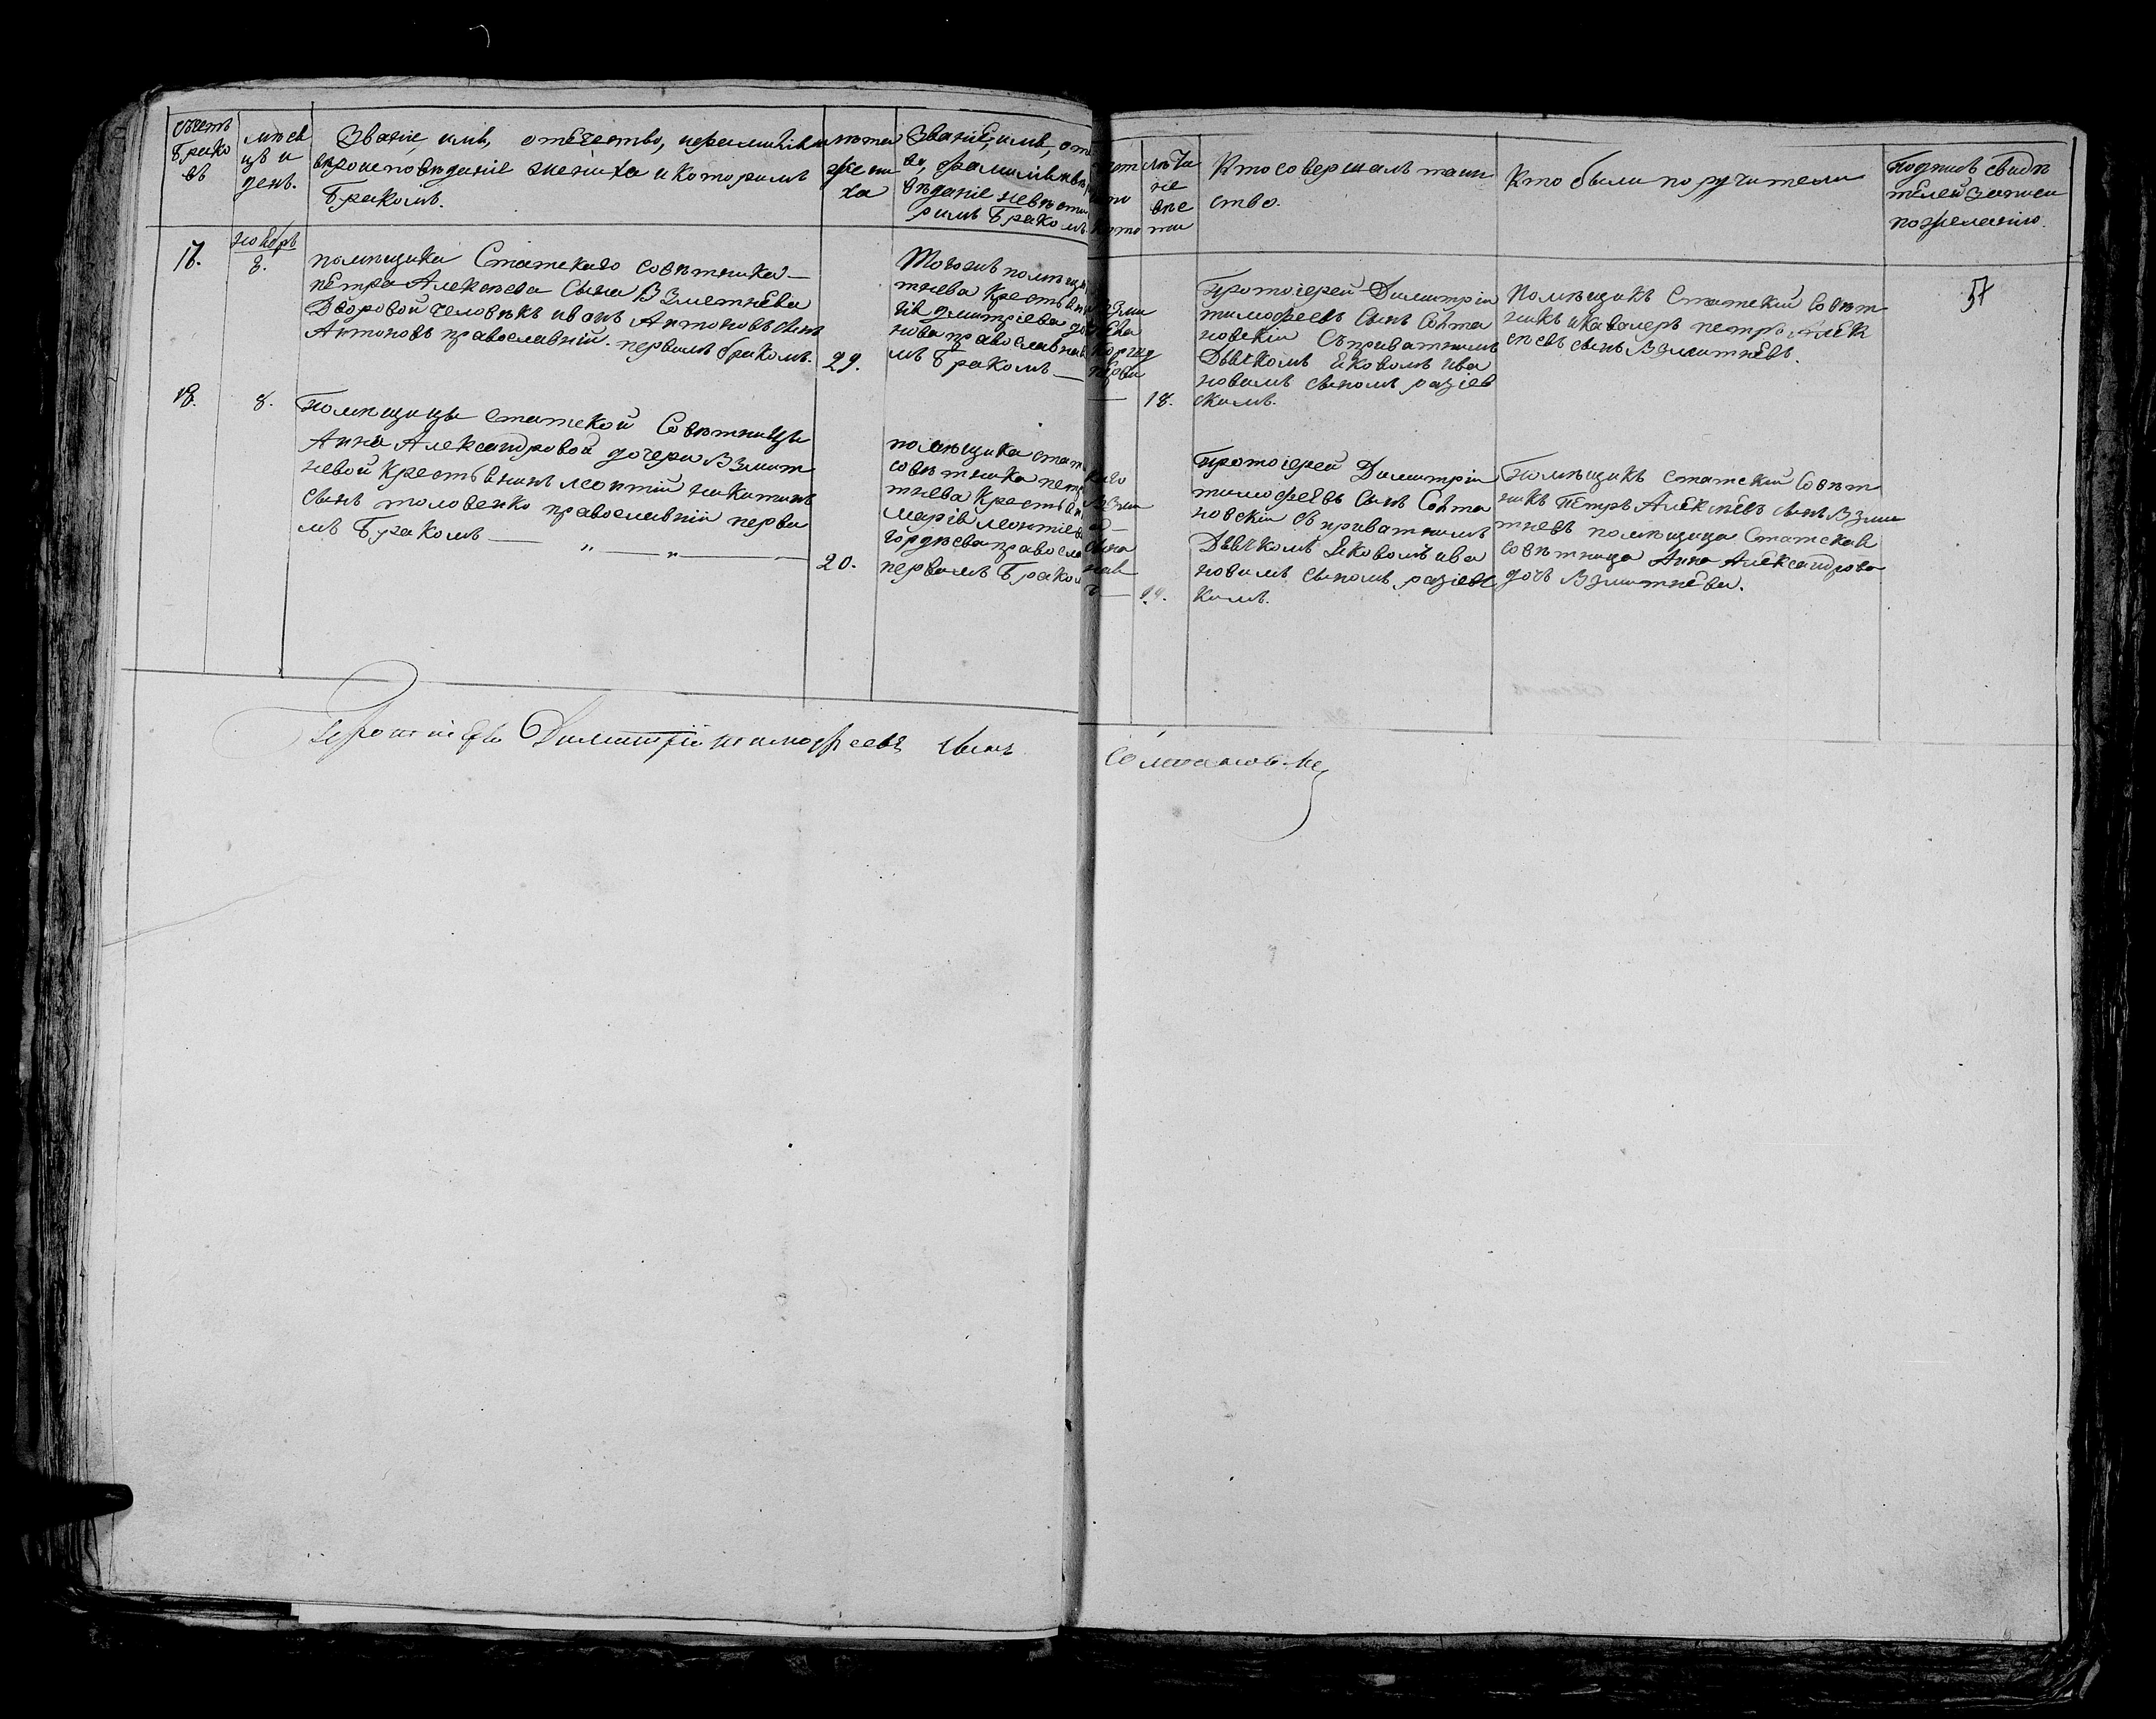 Счетъ
Брако
въ
мѣся
цъ и
день.
Званіе, имя, отечество, и фамилія и
вѣроисповѣданіе жениха и которымъ
Бракомъ.
лѣта
жени
ха
Званіе, имя, оте
во, фамилія, и вѣ
вѣданіе невѣсти
рымъ Бракомъ
лѣта
не
вѣс
ти
Кто совершалъ таин
ство.
Кто были поручители
Подпись свидѣ
телей Записи
по желанію.
17.
Ноябрь
8.
помѣщика Статскаго совѣтника
Петра Алексѣева сына Взметнева
Дворовой человѣкъ иванъ Антоновъ сынъ
Антоновъ православній. первымъ бракомъ.
29.
Тогожъ помѣщи
тнева Крестьян
ія дмитріева до
нова православная
мъ Бракомъ
18.
Протоіерей Димитрій
тимофеевъ сынъ
новскій съ приватнимъ
Дьячкомъ Яковомъ ива
новимъ сыномъ разіев
скимъ.
Помѣщикъ Статскій Совѣт
никъ и кавалеръ петръ Алек
сѣевъ сынъ Взмѣтнѣвъ.
57
18.
8.
Помѣщицы статской Совѣтницы
Анна Александровой дочери Взмѣт
невой Крестьянинъ леонтій никитинъ
сынъ толовенко православній первы
мъ Бракомъ — „ — „ —
20.
помѣщика стат
совѣтника петр
тнева Крестьян
марія леонтіев
гордѣева правосла
первымъ Браком
19.
Протоіерей Димитрій
тимофеевъ сынъ
новскій съ приватнимъ
Дьячкомъ Яковомъ ива
новимъ сыномъ разіевс
кимъ.
Помѣщикъ статскій Совѣт
никъ Петръ Алексѣевъ сынъ Взми
тневъ помѣщица Статская
совѣтница Анна Александрова
дочь Взмитнѣва.
Протоіерей Димитрій тимофеевъ сынъ